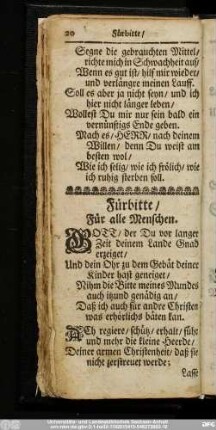 20 Fürbitte/
Segne die gebrauchten Mittel/
richte mich in Schwachheit auf/
Wenn es gut ist/ hilf mir wieder/
und verlängre meinen Lauff.
Soll es aber ja nicht seyn/ und ich
hier nicht länger leben/
Wollest Du mir nur fein bald ein
vernünftigs Ende geben.
Mach es/ HERR/ nach deinem
Willen/ denn Du weist am
besten wol/
Wie ich selig/ wie ich frölich/ wie
ich ruhig sterben soll.
Fürbitte/
Für alle Menschen.
GOTT/ der Du vor langer
Zeit deinem Lande Gnad
erzeiget/
Und dein Ohr zu dem Gebät deiner
Kinder hast geneiget/
Nihm die Bitte meines Mundes
auch itzund genädig an/
Daß ich auch für andre Christen
was erhörlichs bäten kan.
ACh regiere/ schütz/ erhalt/ führ
und mehr die kleine Heerde/
Deiner armen Christenheit/ daß sie
nicht zerstreuet werde;
Lasse